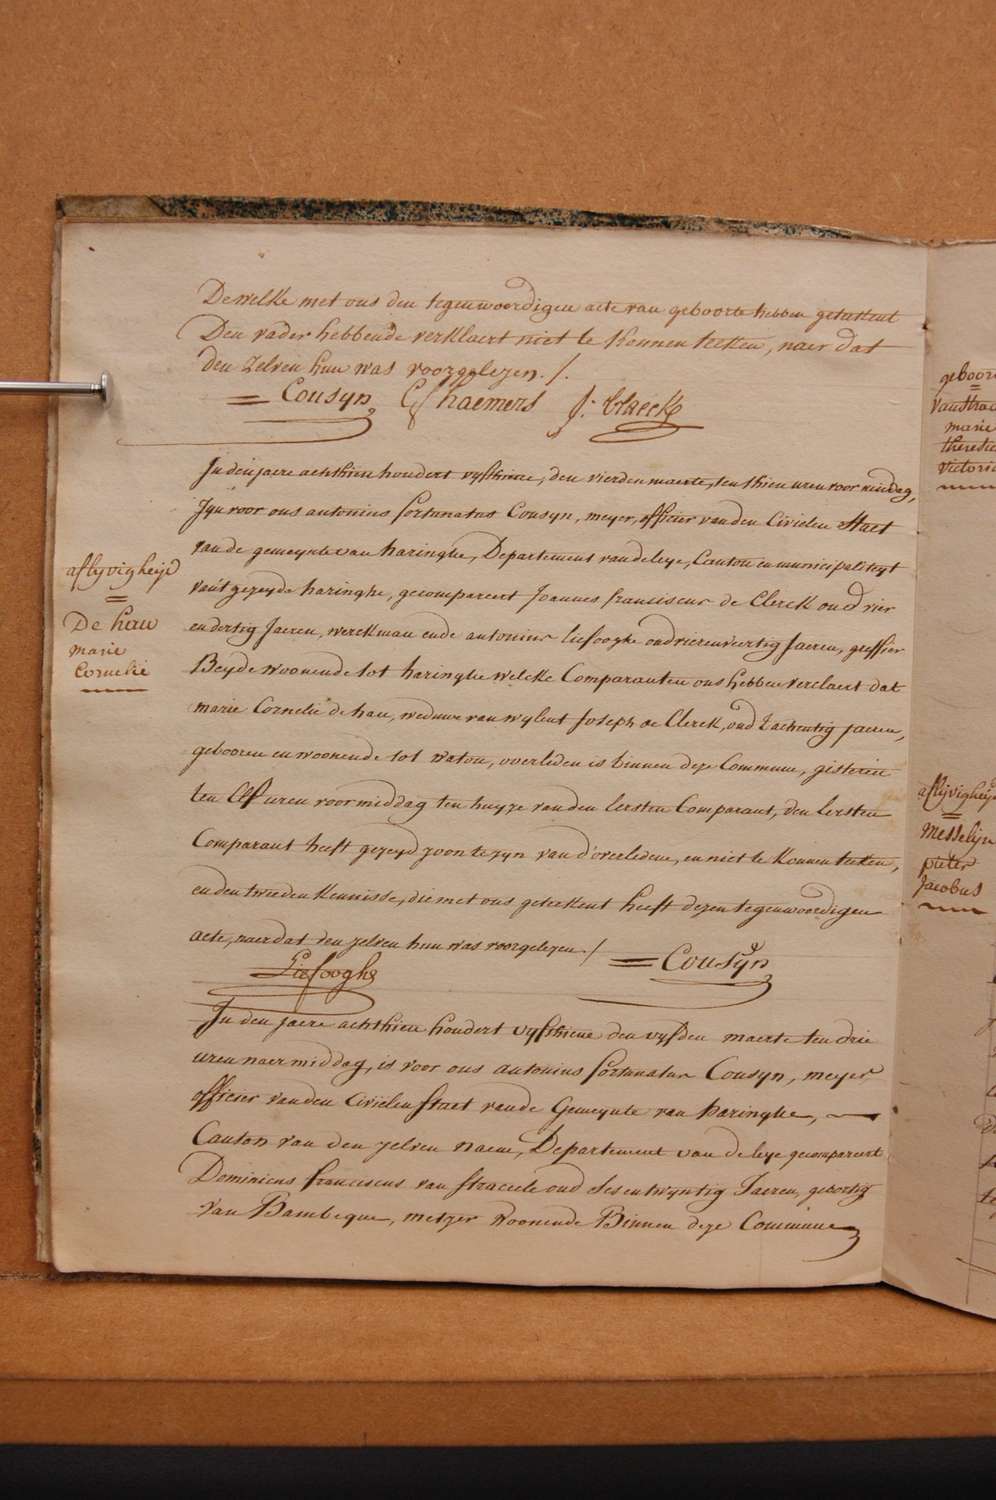 De welke met ons den tegenwoordigen acte van geboorte hebben geteekent
Den vader hebbende verklaert niet te konnen teeken, naer dat
den zelven hun was voorgelezen ./.
Cousyn
In den jaere achthien hondert vyfthiene, den vierden maerte, ten thien uren voor middag,
Zyn voor ons antonius fortunatus Cousyn, meyer, officier van den Civielen Staet
van de gemeynte van haringhe, Departement van de leye, Canton en municipaliteyt
van't gezeyde haringhe, gecompareert Joannes franciscus de Clerck oud vier
en dertig Jaeren, werckman ende antonius liefooghe oud vierenveertig Jaeren, greffier
Beyde woonende tot haringhe welcke Comparanten ons hebben verclaert dat
marie Cornelie de hau, weduwe van wylent Joseph de Clerck, oud tachentig jaeren,
gebooren en woonende tot watou, overleden is binnen deze Commune, gisteren
ten elf uren voormiddag ten huyze van den Eersten Comparant, den Eersten
Comparant heeft gezeyd zoon te zyn van d'overledene, en niet te konnen teeken,
en den tweeden kennisse, die met ons geteekent heeft dezen tegenwoordigen
acte, naer dat den zelven hun was voorgelezen ./
Liefooghe Cousyn
In den jaere achthien hondert vyfthiene den vyfden maerte ten drie
uren naermiddag, is voor ons antonius fortunatus Cousyn, meyer
officier van den Civielen Staet van de Gemeynte van haringhe,
Canton van den zelven naeme, Departement van de leye gecompareert
Dominicus franciscus van Straceele oud sesentwyntig Jaeren, geboortig
van Bambeque, metzer woonende Binnen deze Commune
aflyvigheyd
De hau
marie
Cornelie
marie
aflyvigheyd
Messelyn
pieter
Jacobus